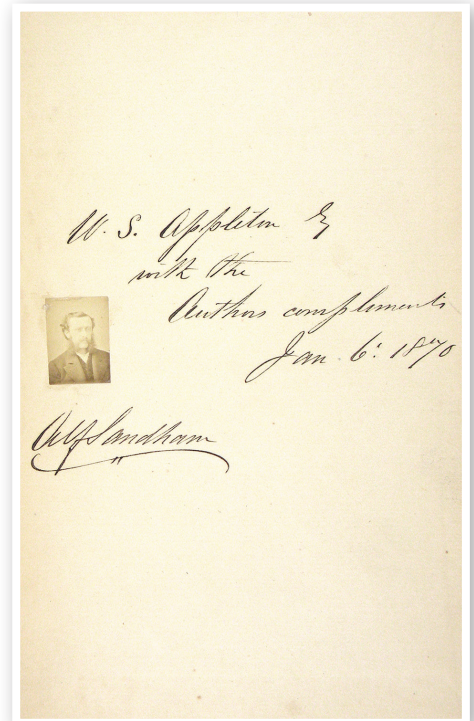 W. S. Appleton Esq
with the
Authors compliments
Jan 6: 1870
Alf Sandham